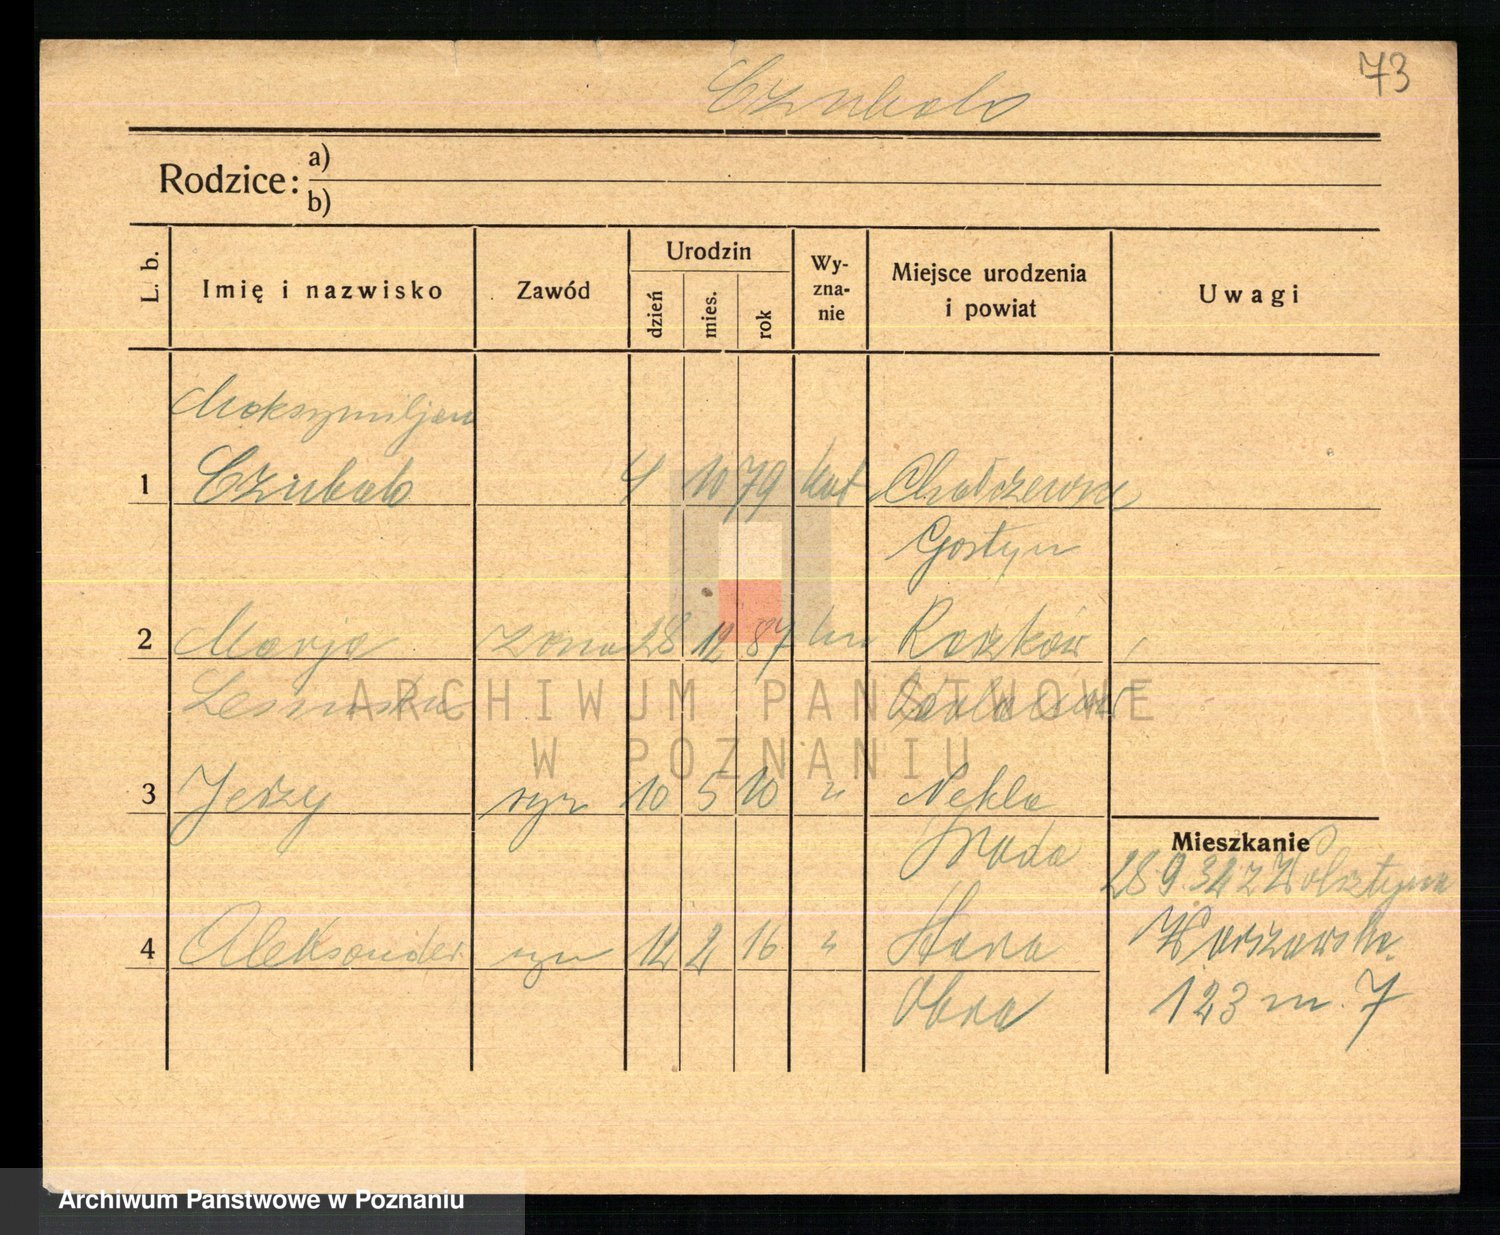 73
Czubak
Rodzice: a)
b)
L. b.
Imię i nazwisko
Zawód
Urodzin
dzień
mies.
rok
Wy-
zna-
nie
Miejsce urodzenia
i powiat
Uwagi
Maksymiljan
1 Czubak 4 10 79 kat
Gostyn
2 Marja żona 28 12 87 Roszków
3 Jerzy syn 10 5 10 " Nekla
Środa
Mieszkanie
28.9.34 z Wolsztyna
4 Aleksander syn 12 2 16 " Stara
Warszawska
Obra
123 m. 7
ARCHIWUM PAŃSTWOWE
W POZNANIU
Archiwum Państwowe w Poznaniu